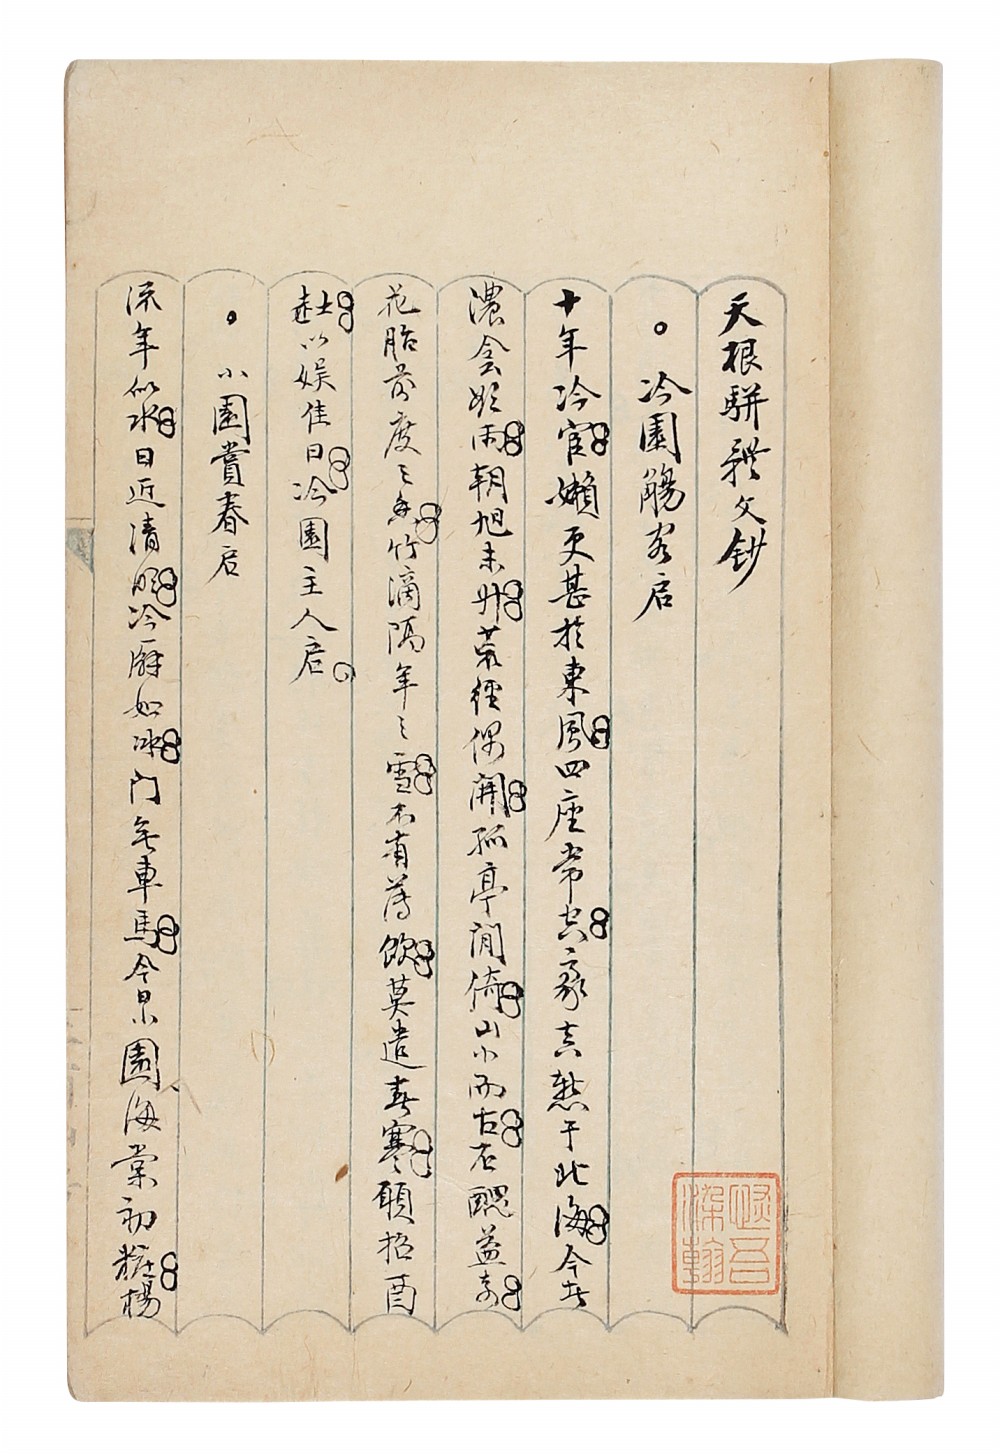 天根駢體文鈔
冷園觴客启
十年冷宦嬾更甚於東風四座常空豪真慙于北海今者
濃陰欲雨朝旭未升荒徑偶開孤亭閒倚山小而古石醜益奇
花胎前度之香竹滴隔年之雪不有薄飲莫遣春寒願招酉
社以娱佳日冷園主人启
小園賞春启
流年似水日近清明冷廨如冰門無車馬今日小園海棠初粧楊